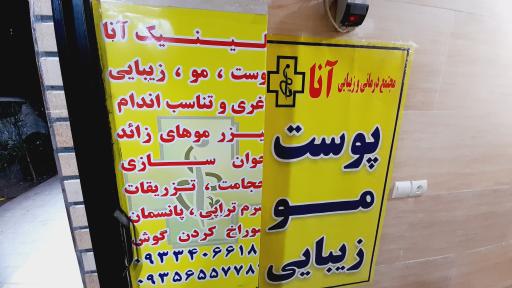 لینیک آنا
پوست ، مو ، زیبایی
غری و تناسب اندام
یزر موهای زائد
جوان سازی
حجامت ، تزریقات
سرم تراپی ، پانسمان
سوراخ کردن گوش
۰۹۳۳۴۰۶۶۱۸
۰۹۳۵۶۵۵۷۷۸
مجتمع درمانی و زیبایی آنا
پوست
مو
زیبایی